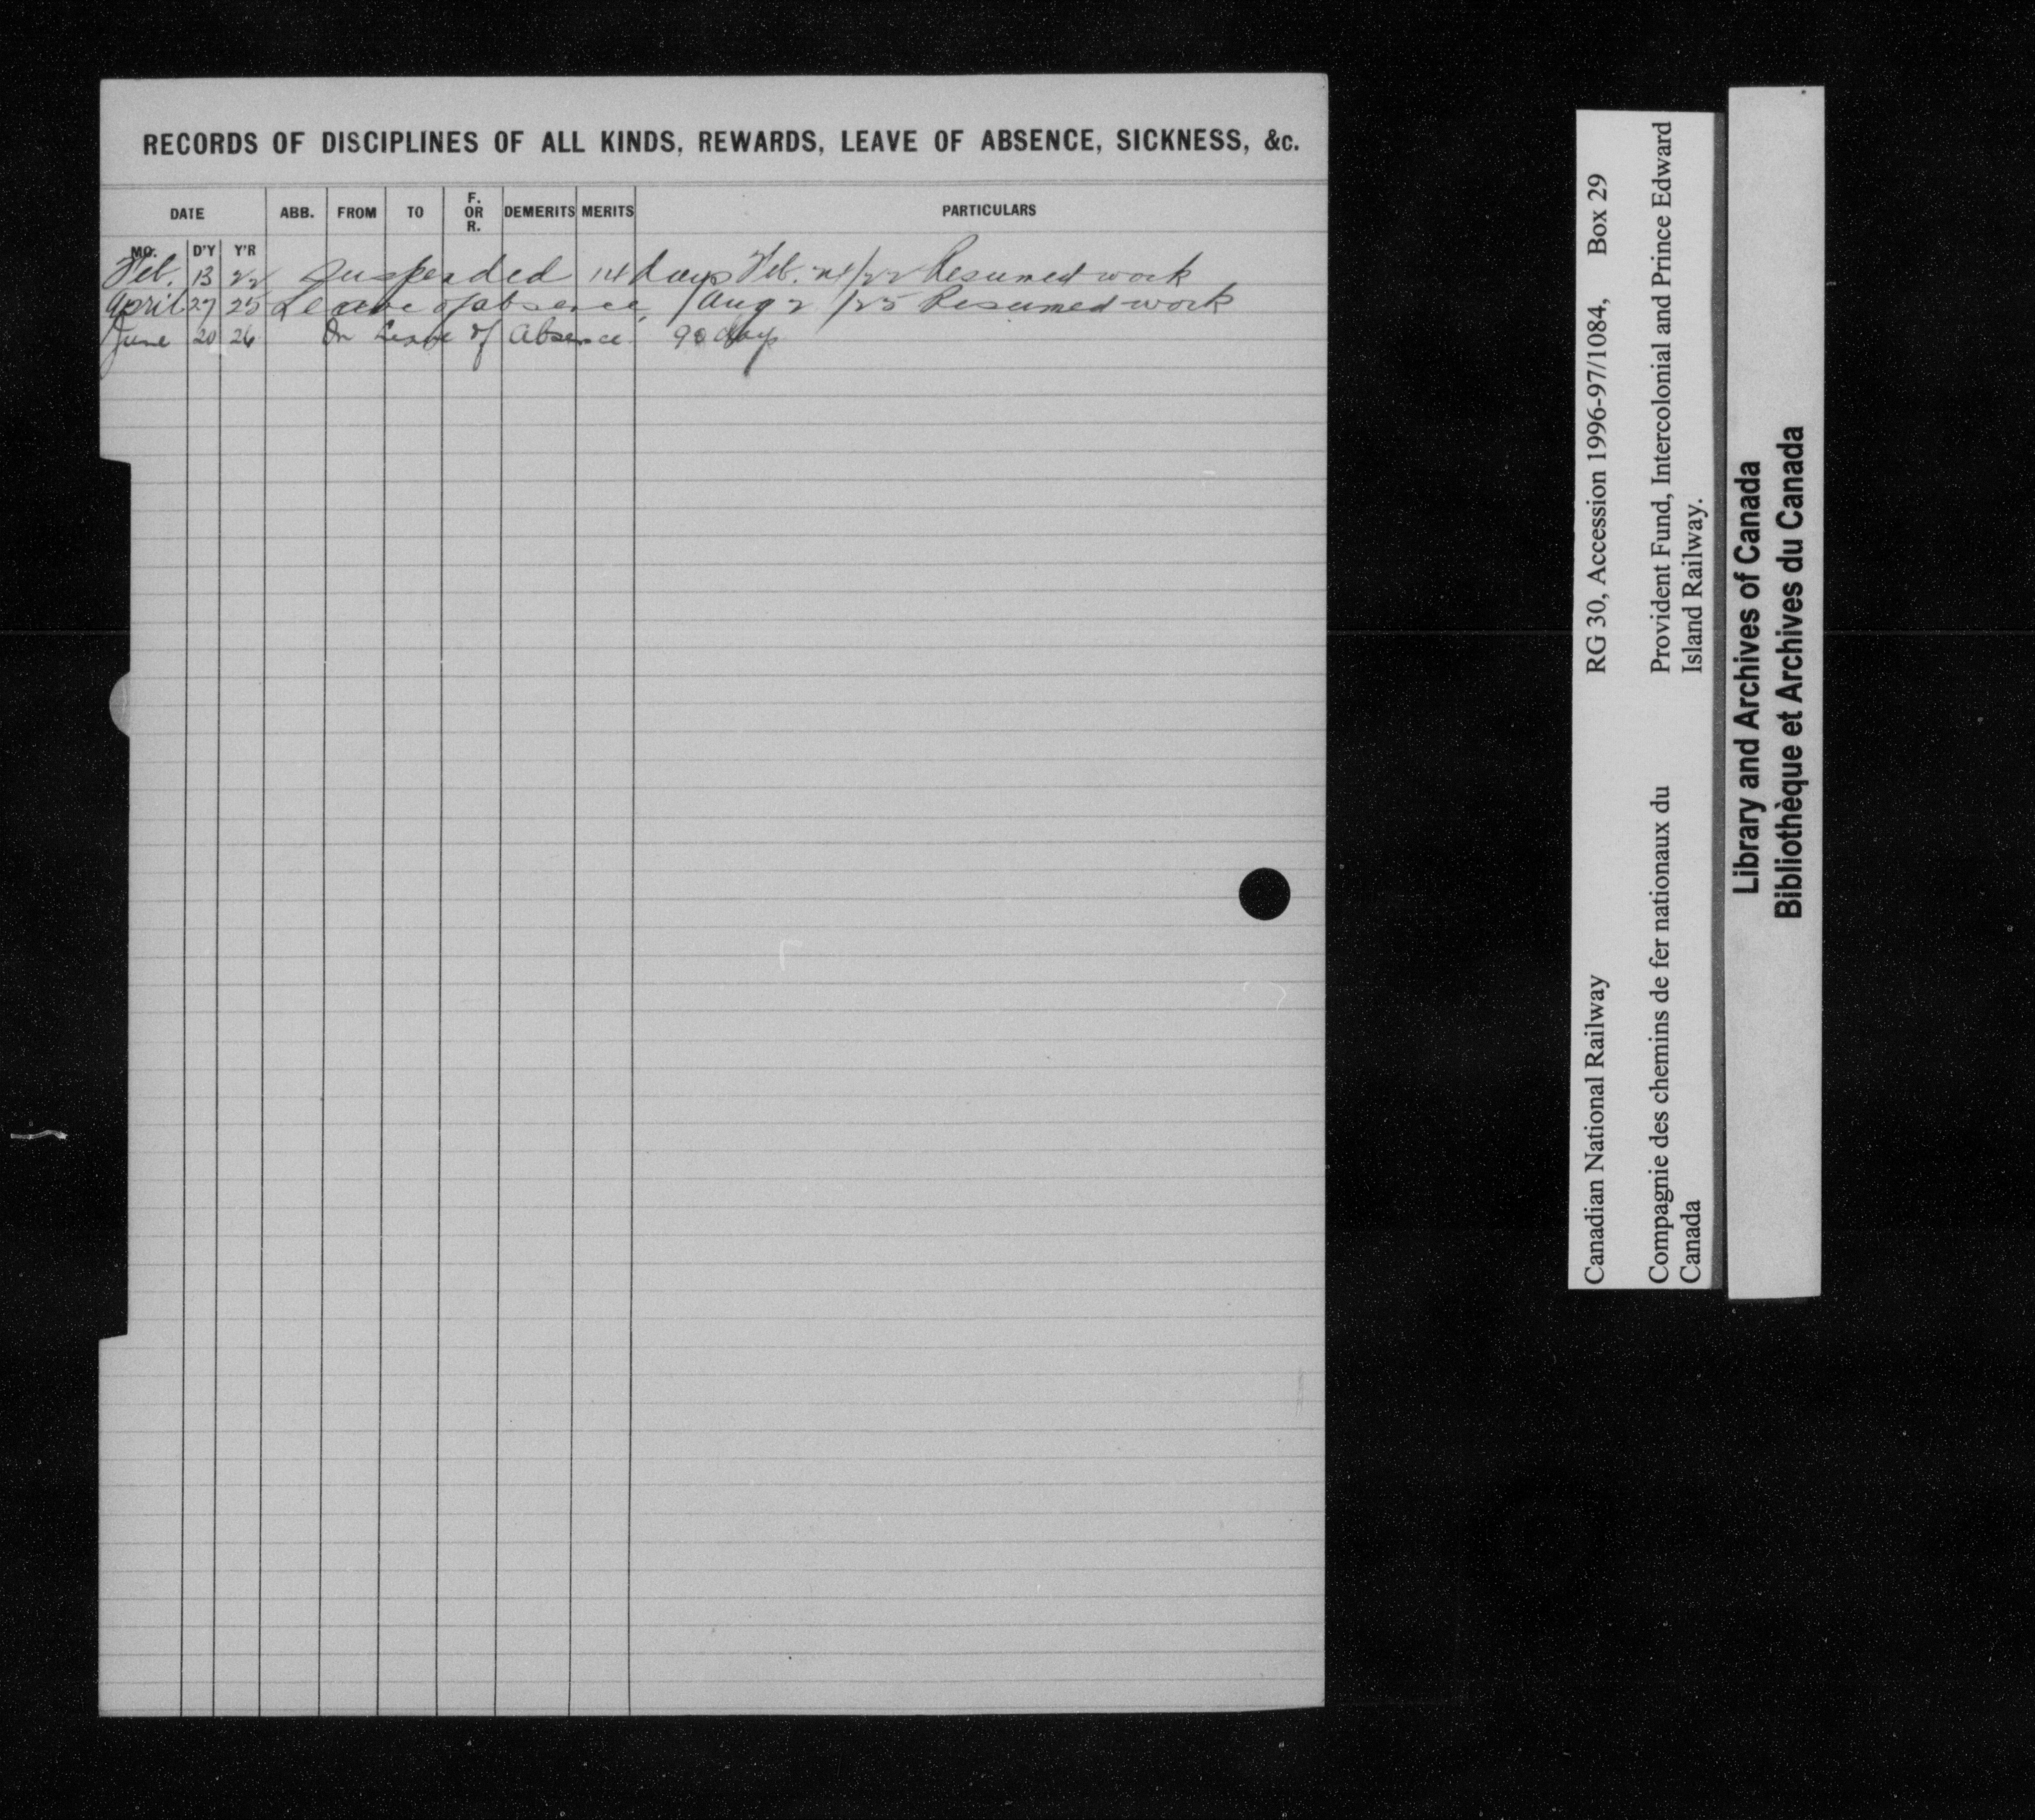 RECORDS OF DISCIPLINES OF ALL KINDS, REWARDS, LEAVE OF ABSENCE, SICKNESS, &c.
DATE ABB. FROM TO F. OR R. DEMERITS MERITS PARTICULARS
MO. D'Y Y'R
Feb. 13 22 Suspended 14 days Feb. /22 Resumed work
April 27 25 Leave of absence / Aug 2 /25 Resumed work
June 20 26 On Leave of Absence 90 days
Canadian National Railway RG 30, Accession 1996-97/1084, Box 29
Compagnie des chemins de fer nationaux du Provident Fund, Intercolonial and Prince Edward
Canada Island Railway.
Library and Archives of Canada
Bibliothèque et Archives du Canada